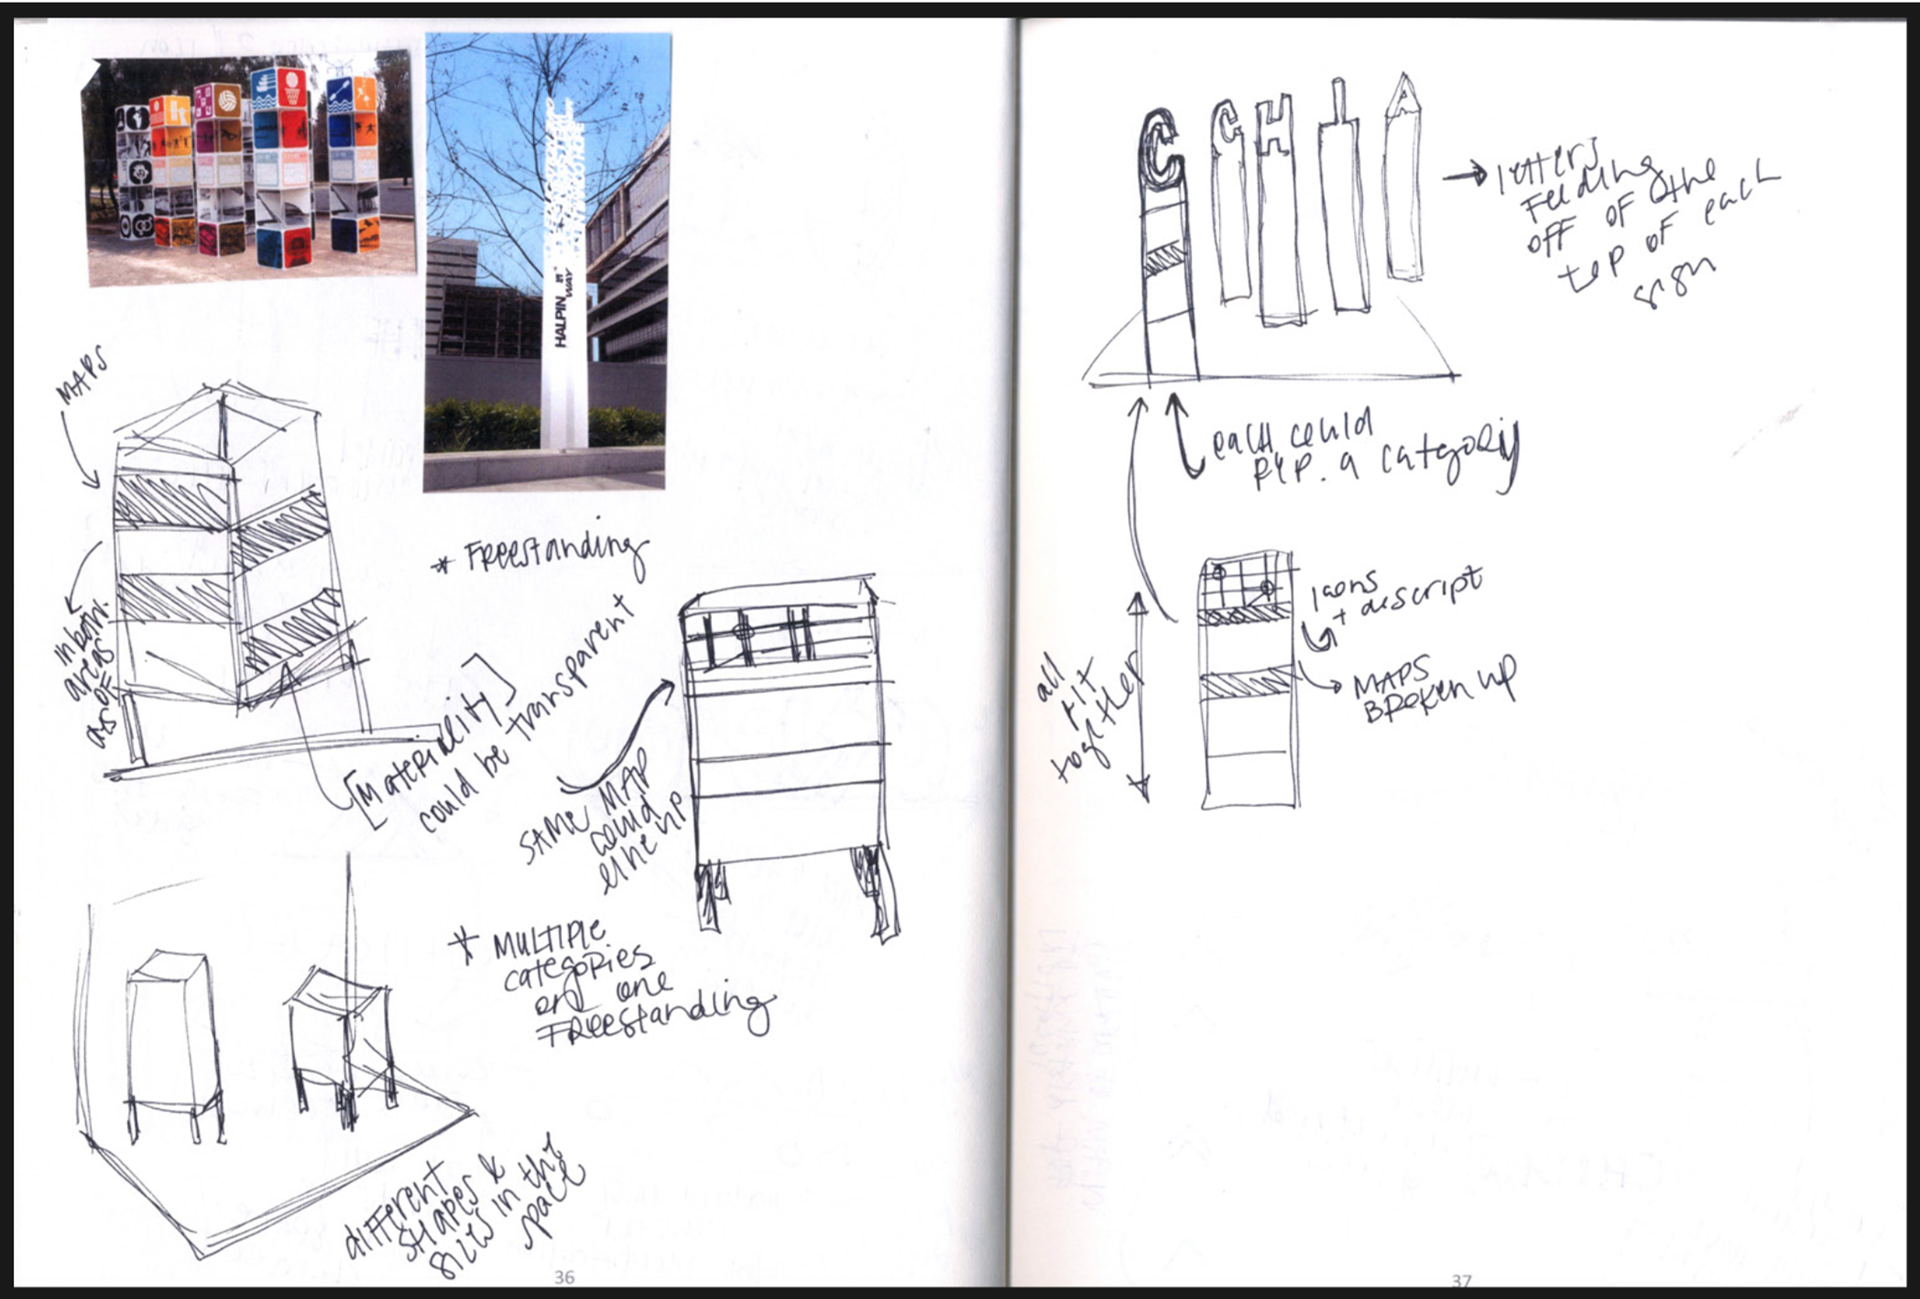 HALPIN
WAY
MAPS
in both
areas
as of
* FREEstanding
[Materiality]
could be transparent
SAME MAP
could
line up
* MULTIPLE
categories
on one
FREEstanding
different
shapes &
sizes in the
space
36
C C H I A
letters
FEEding
off of the
top of each
sign
each could
rep. a category
Icons
+ descript
MAPS
Broken up
all
fit
together
37